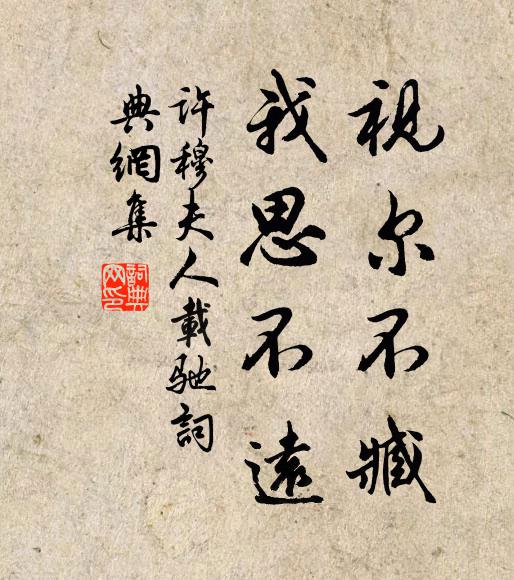 視尔不臧
我思不遠
許穆夫人載馳詞
典網集
詞典
网印